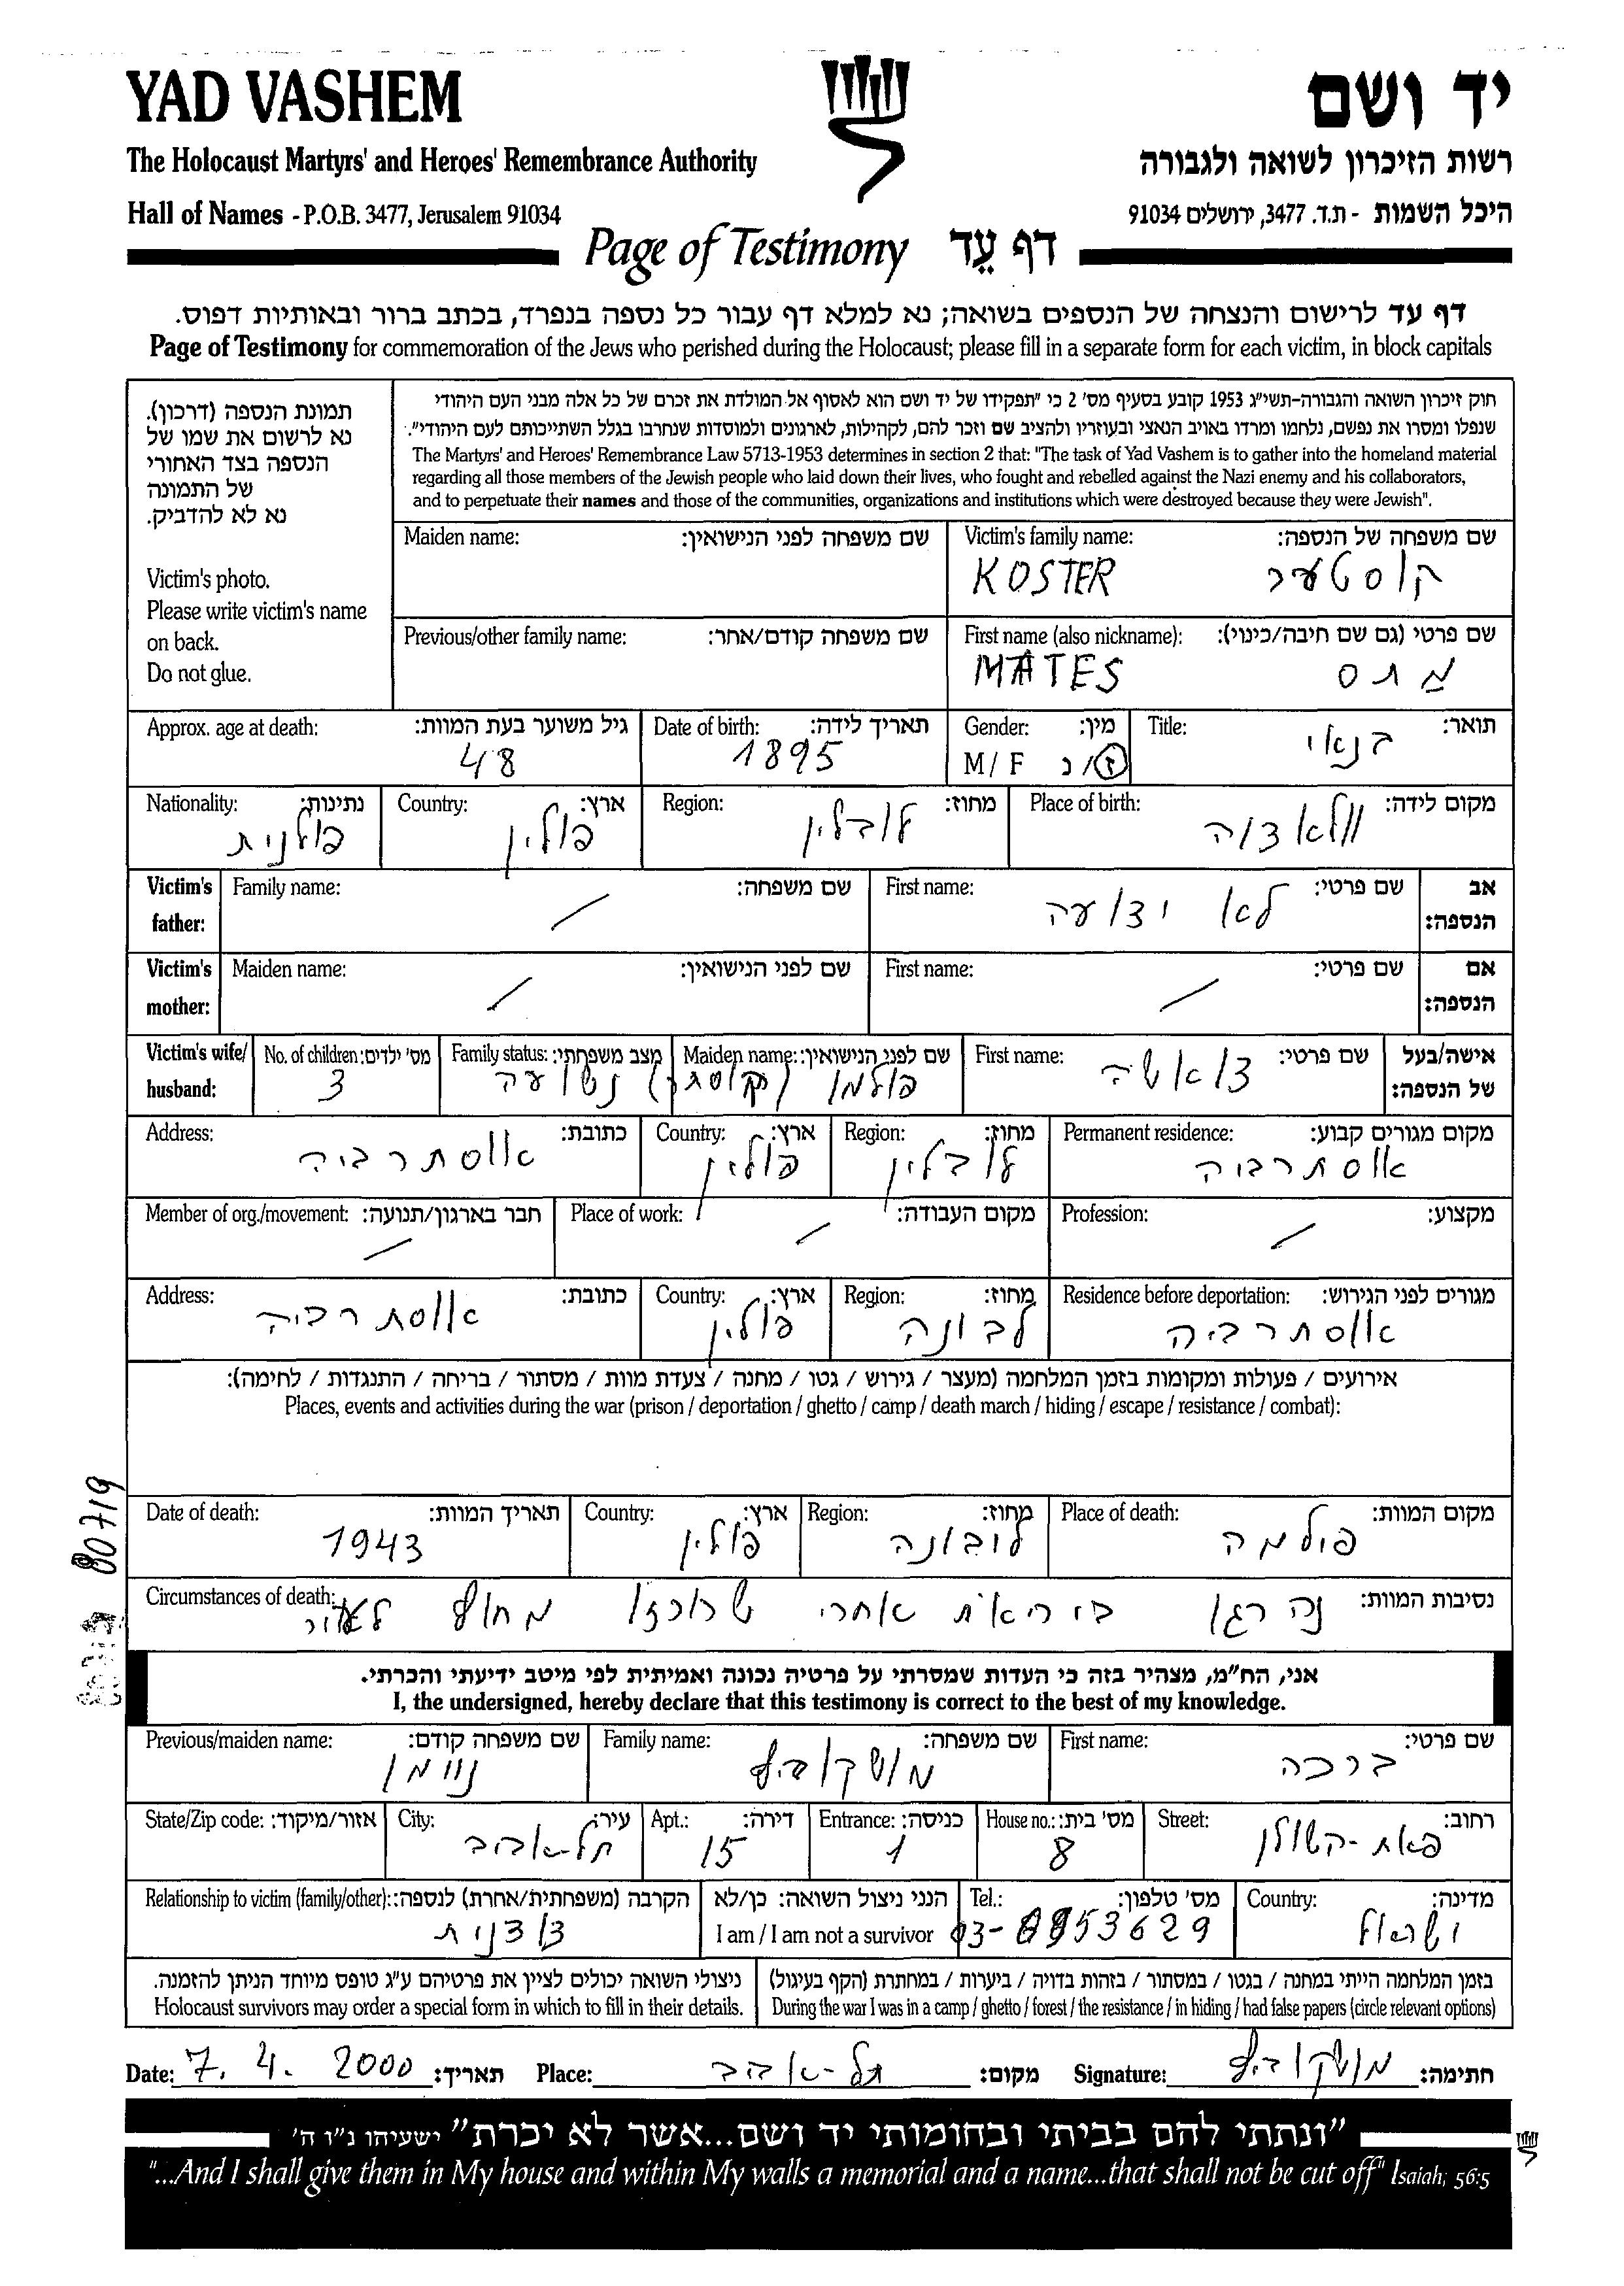 YAD VASHEM
יד ושם
The Holocaust Martyrs' and Heroes' Remembrance Authority
רשות הזיכרון לשואה ולגבורה
Hall of Names - P.O.B. 3477, Jerusalem 91034
היכל השמות - ת.ד. 3477, ירושלים 91034
Page of Testimony דף עֵד
דף עד לרישום והנצחה של הנספים בשואה; נא למלא דף עבור כל נספה בנפרד, בכתב ברור ובאותיות דפוס.
Page of Testimony for commemoration of the Jews who perished during the Holocaust; please fill in a separate form for each victim, in block capitals
תמונת הנספה (דרכון).
נא לרשום את שמו של
הנספה בצד האחורי
של התמונה
נא לא להדביק.
Victim's photo.
Please write victim's name
on back.
Do not glue.
חוק זיכרון השואה והגבורה-תשי"ג 1953 קובע בסעיף מס' 2 כי "תפקידו של יד ושם הוא לאסוף אל המולדת את זכרם של כל אלה מבני העם היהודי
שנפלו ומסרו את נפשם, נלחמו ומרדו באויב הנאצי ובעוזריו ולהציב שם וזכר להם, לקהילות, לארגונים ולמוסדות שנחרבו בגלל השתייכותם לעם היהודי".
The Martyrs' and Heroes' Remembrance Law 5713-1953 determines in section 2 that: "The task of Yad Vashem is to gather into the homeland material
regarding all those members of the Jewish people who laid down their lives, who fought and rebelled against the Nazi enemy and his collaborators,
and to perpetuate their names and those of the communities, organizations and institutions which were destroyed because they were Jewish".
Victim's family name: שם משפחה של הנספה:
KOSTER קוסטער
Maiden name: שם משפחה לפני הנישואין:
First name (also nickname): שם פרטי (גם שם חיבה/כינוי):
MATES מתס
Previous/other family name: שם משפחה קודם/אחר:
Title: תואר:
בנאי
Gender: מין:
M / F ז/נ
Date of birth: תאריך לידה:
1895
Approx. age at death: גיל משוער בעת המוות:
48
Place of birth: מקום לידה:
Region: מחוז:
לובלין
Country: ארץ:
פולין
Nationality: נתינות:
פולנית
Victim's father: אב הנספה:
First name: שם פרטי:
לא ידועה
Family name: שם משפחה:
/
Victim's mother: אם הנספה:
First name: שם פרטי:
/
Maiden name: שם לפני הנישואין:
/
Victim's wife/ husband: אישה/בעל של הנספה:
First name: שם פרטי:
Maiden name: שם לפני הנישואין:
Family status: מצב משפחתי:
נשועה
No. of children: מס' ילדים:
3
Permanent residence: מקום מגורים קבוע:
אוסתרביה
Region: מחוז:
לובלין
Country: ארץ:
פולין
Address: כתובת:
אוסתרביה
Profession: מקצוע:
/
Place of work: מקום העבודה:
/
Member of org./movement: חבר בארגון/תנועה:
/
Residence before deportation: מגורים לפני הגירוש:
אוסתרביה
Region: מחוז:
לבונה
Country: ארץ:
פולין
Address: כתובת:
אוסתרביה
אירועים / פעולות ומקומות בזמן המלחמה (מעצר / גירוש / גטו / מחנה / צעדת מוות / מסתור / בריחה / התנגדות / לחימה):
Places, events and activities during the war (prison / deportation / ghetto / camp / death march / hiding / escape / resistance / combat):
Place of death: מקום המוות:
פולמה
Region: מחוז:
לובונה
Country: ארץ:
פולין
Date of death: תאריך המוות:
1943
Circumstances of death: נסיבות המוות:
נהרגו אחרי שרוכזו מחוץ
80719
אני, הח"מ, מצהיר בזה כי העדות שמסרתי על פרטיה נכונה ואמיתית לפי מיטב ידיעתי והכרתי.
I, the undersigned, hereby declare that this testimony is correct to the best of my knowledge.
First name: שם פרטי:
ברכה
Family name: שם משפחה:
מושקוביץ
Previous/maiden name: שם משפחה קודם:
נוימן
Street: רחוב:
פאת-השולן
House no.: מס' בית:
8
Entrance: כניסה:
1
Apt.: דירה:
15
City: עיר:
תל-אביב
State/Zip code: אזור/מיקוד:
Country: מדינה:
ישראל
Tel.: מס' טלפון:
הנני ניצול השואה: כן/לא
I am / I am not a survivor
Relationship to victim (family/other): הקרבה (משפחתית/אחרת) לנספה:
דודנית
בזמן המלחמה הייתי במחנה / בגטו / במסתור / בזהות בדויה / ביערות / במחתרת (הקף בעיגול)
During the war I was in a camp / ghetto / forest / the resistance / in hiding / had false papers (circle relevant options)
ניצולי השואה יכולים לציין את פרטיהם ע"ג טופס מיוחד הניתן להזמנה.
Holocaust survivors may order a special form in which to fill in their details.
Date: 7. 4. 2000 תאריך: Place: תל-אביב מקום: Signature: מושקוביץ חתימה:
"ונתתי להם בביתי ובחומותי יד ושם...אשר לא יכרת" ישעיהו נ"ו ה'
"...And I shall give them in My house and within My walls a memorial and a name...that shall not be cut off" Isaiah, 56:5